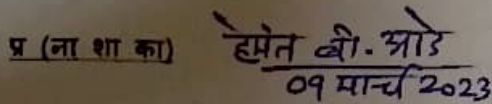 प्र (ना शा का) हेमंत बी. आडे
09 मार्च 2023